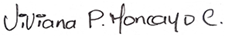 Viviana P. Moncayo C.